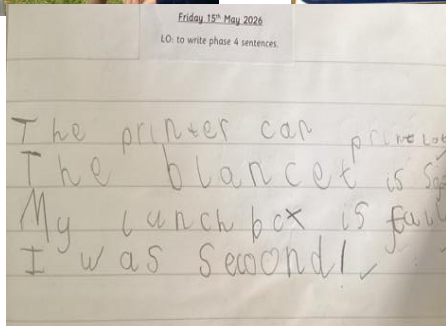 Friday 15th May 2026
LO: to write phase 4 sentences.
The printer can print Lot
The blancet is
My lunch box is
I was second!